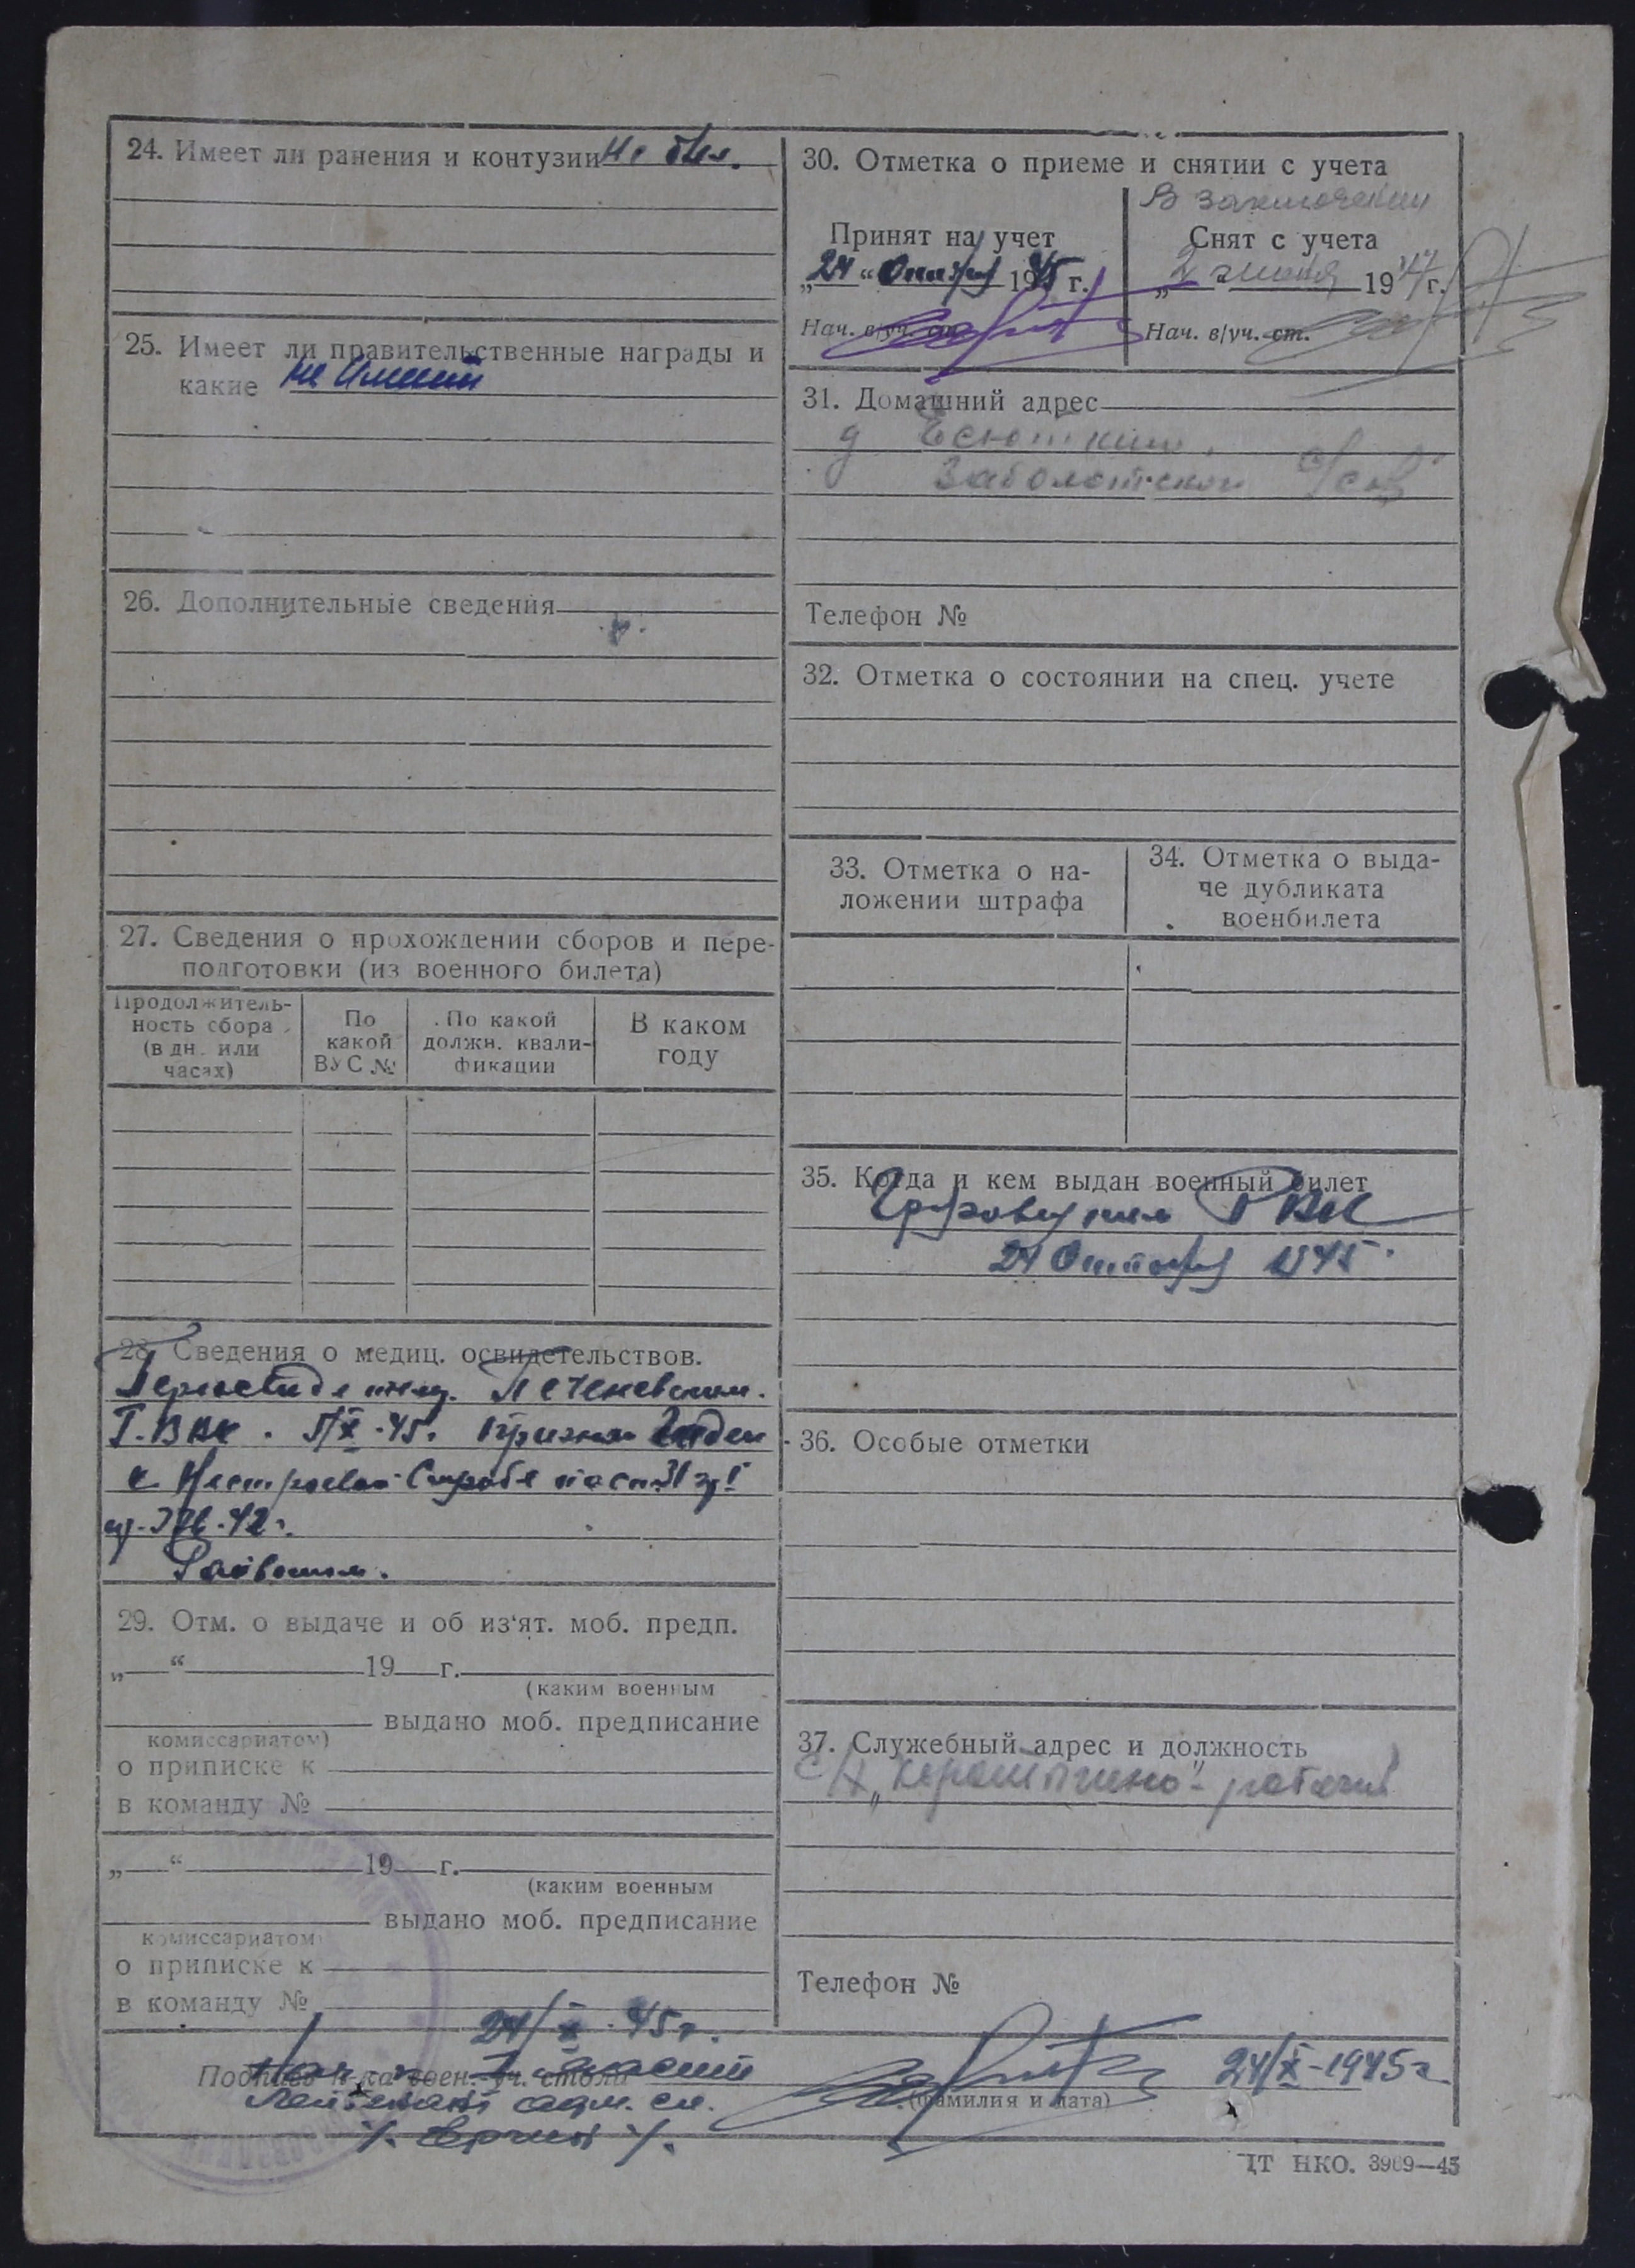 24. Имеет ли ранения и контузии не был.
25. Имеет ли правительственные награды и
какие не имеет
26. Дополнительные сведения
27. Сведения о прохождении сборов и пере-
подготовки (из военного билета)
Продолжитель-
ность сбора
(в дн. или
часах)
По
какой
ВУС №
По какой
должн. квали-
фикации
В каком
году
28. Сведения о медиц. освидетельствов.
45. признан годен
к нестроевой службе по ст. 31
42 г.
29. Отм. о выдаче и об из‘ят. моб. предп.
„ “ 19 г.
(каким военным
выдано моб. предписание
комиссариатом)
о приписке к
в команду №
„ “ 19 г.
(каким военным
выдано моб. предписание
комиссариатом
о приписке к
в команду №
30. Отметка о приеме и снятии с учета
В заключении
Принят на учет
„24 “ октября 1945 г.
Нач. в/уч. ст.
Снят с учета
„2 “ 1947 г.
Нач. в/уч. ст.
31. Домашний адрес
д
Заболотского с/сов
Телефон №
32. Отметка о состоянии на спец. учете
33. Отметка о на-
ложении штрафа
34. Отметка о выда-
че дубликата
военбилета
35. Когда и кем выдан военный билет
РВК
24 октября 1945.
36. Особые отметки
37. Служебный адрес и должность
рабочий
Телефон №
24/X-45 г.
Подпись н-ка воен.-уч. стола
Лейтенант адм. сл.
24/X-1945 г.
(фамилия и дата)
ЦТ НКО. 3909—45